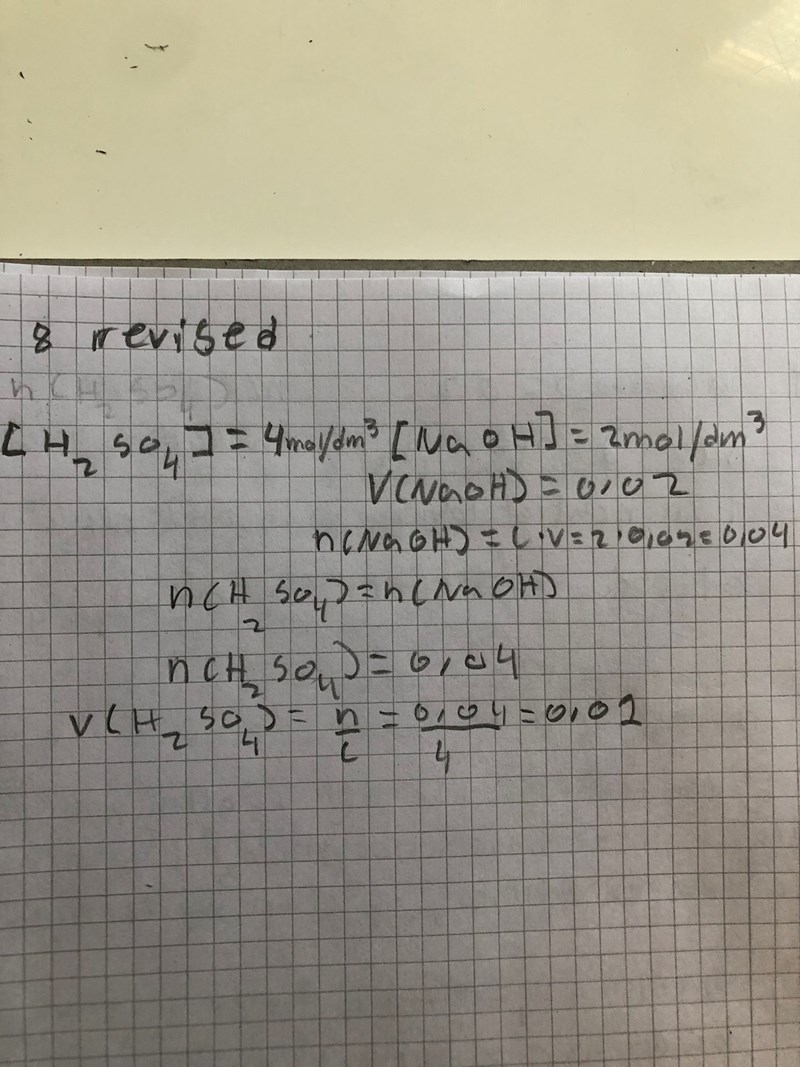 8 revised
n(H2SO4)
[H2SO4] = 4mol/dm³ [NaOH] = 2mol/dm³
V(NaOH) = 0,02
n(NaOH) = C·V = 2·0,02 = 0,04
n(H2SO4) = n(NaOH)
n(H2SO4) = 0,04
V(H2SO4) = n/C = 0,04/4 = 0,01